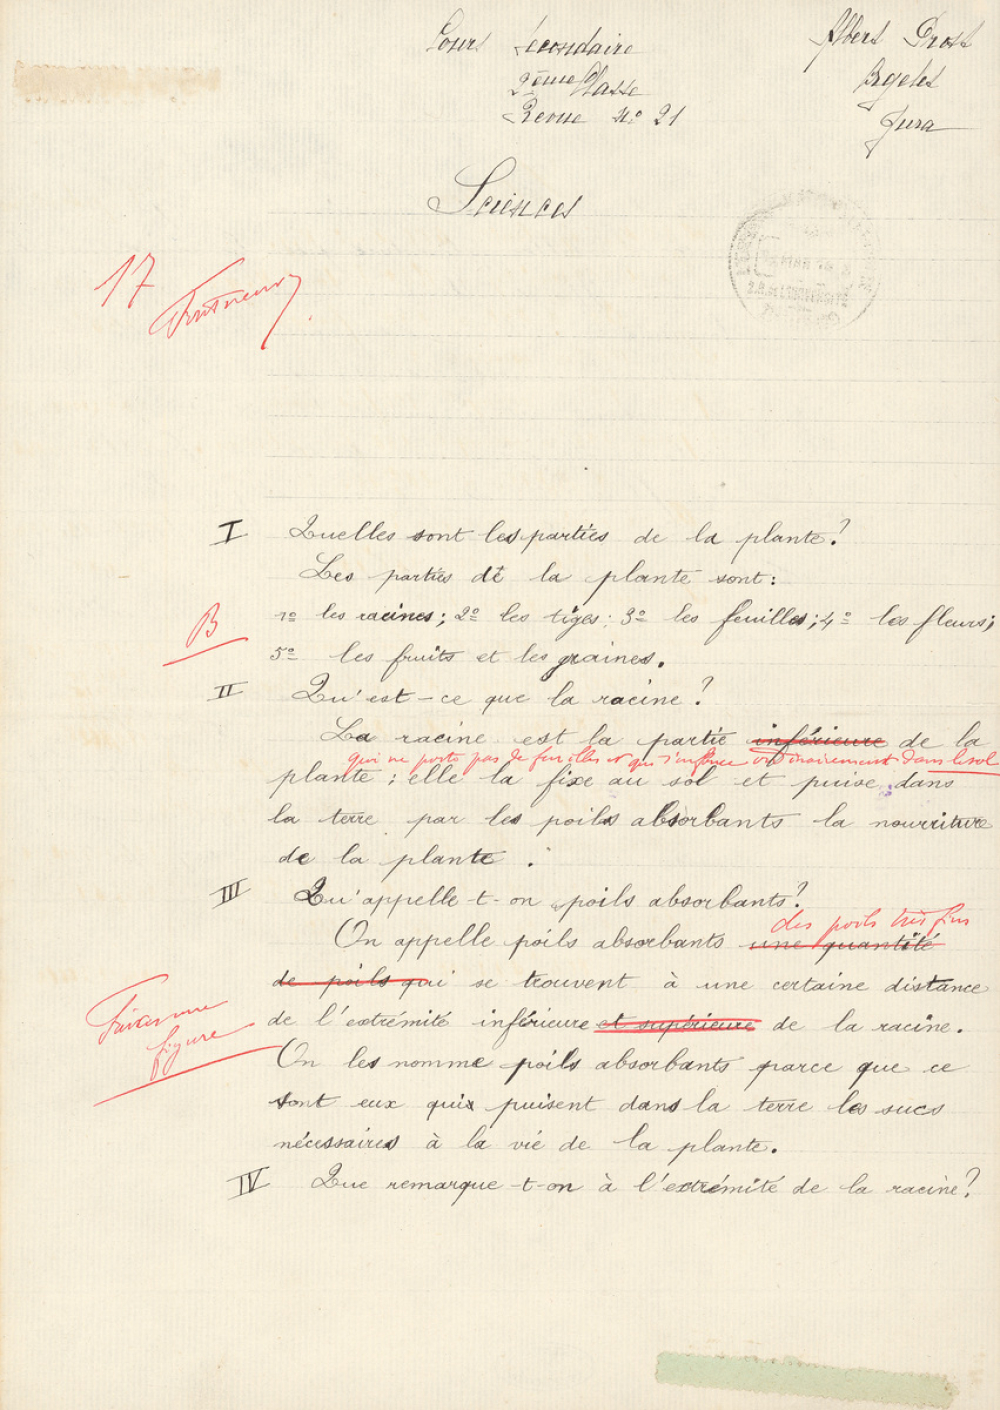 Cours Secondaire
2ème Classe
Revue No 21
Albert Prost
Jura
Sciences
17
I Quelles sont les parties de la plante?
Les parties de la plante sont:
B
1º les racines; 2º les tiges: 3º les feuilles; 4º les fleurs;
5º les fruits et les graines.
II Qu'est-ce que la racine?
La racine est la partie inférieure de la
qui ne porte pas de feuilles et qui s'enfonce ordinairement dans le sol
plante; elle la fixe au sol et puise dans
la terre par les poils absorbants la nourriture
de la plante.
III Qu'appelle-t-on poils absorbants?
des poils très fins
On appelle poils absorbants une quantité
de poils qui se trouvent à une certaine distance
de l'extrémité inférieure et supérieure de la racine.
figure
On les nomme poils absorbants parce que ce
sont eux qui puisent dans la terre les sucs
nécessaires à la vie de la plante.
IV Que remarque-t-on à l'extrémité de la racine?